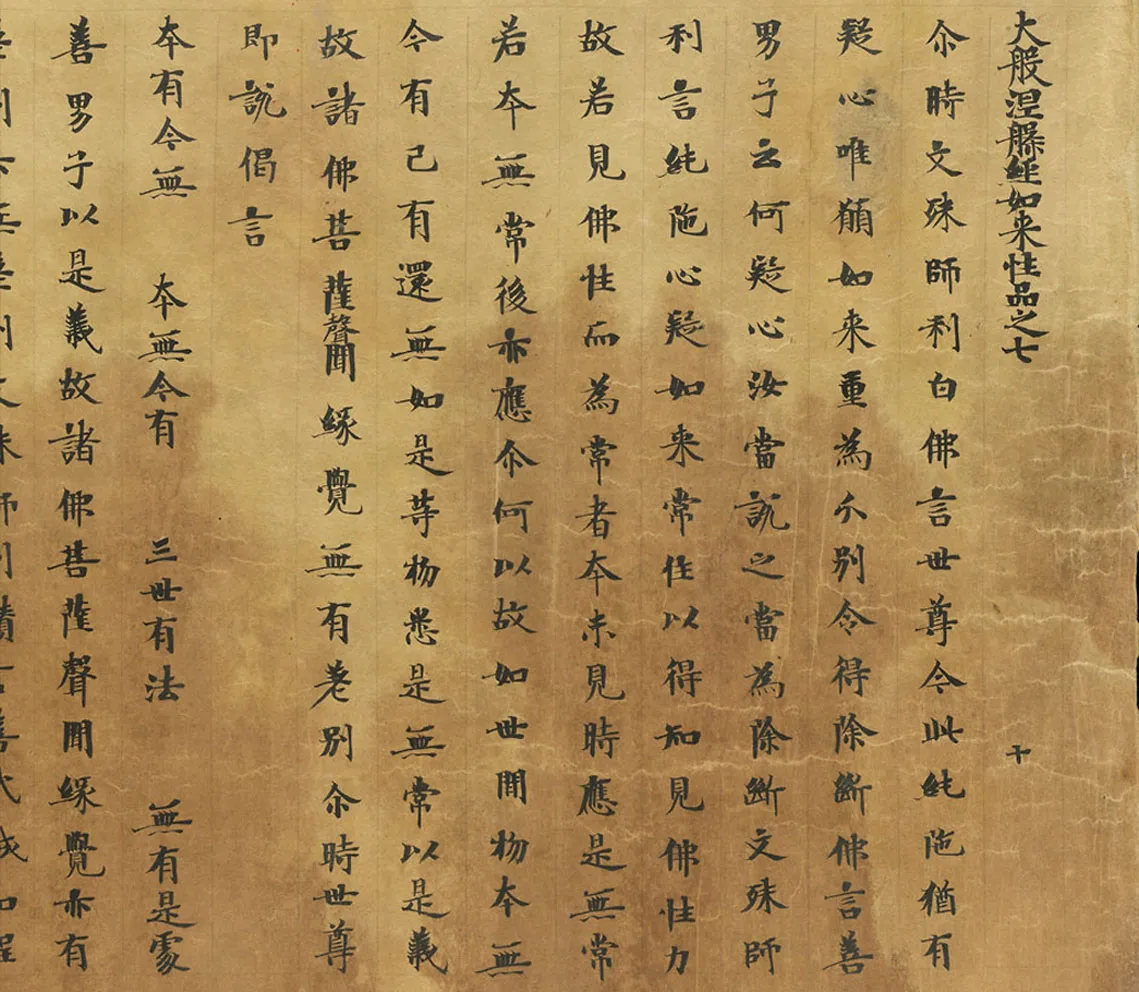 大般涅槃經如来性品之七 十
尒時文殊師利白佛言世尊今此純陁猶有
疑心唯願如来重為分別令得除斷佛言善
男子云何疑心汝當說之當為除斷文殊師
利言純陁心疑如来常住以得知見佛性力
故若見佛性而為常者本未見時應是無常
若本無常後亦應尒何以故如世間物本無
今有已有還無如是等物悉是無常以是義
故諸佛菩薩聲聞緣覺無有差別尒時世尊
即說偈言
本有今無 本無今有 三世有法 無有是處
善男子以是義故諸佛菩薩聲聞緣覺亦有